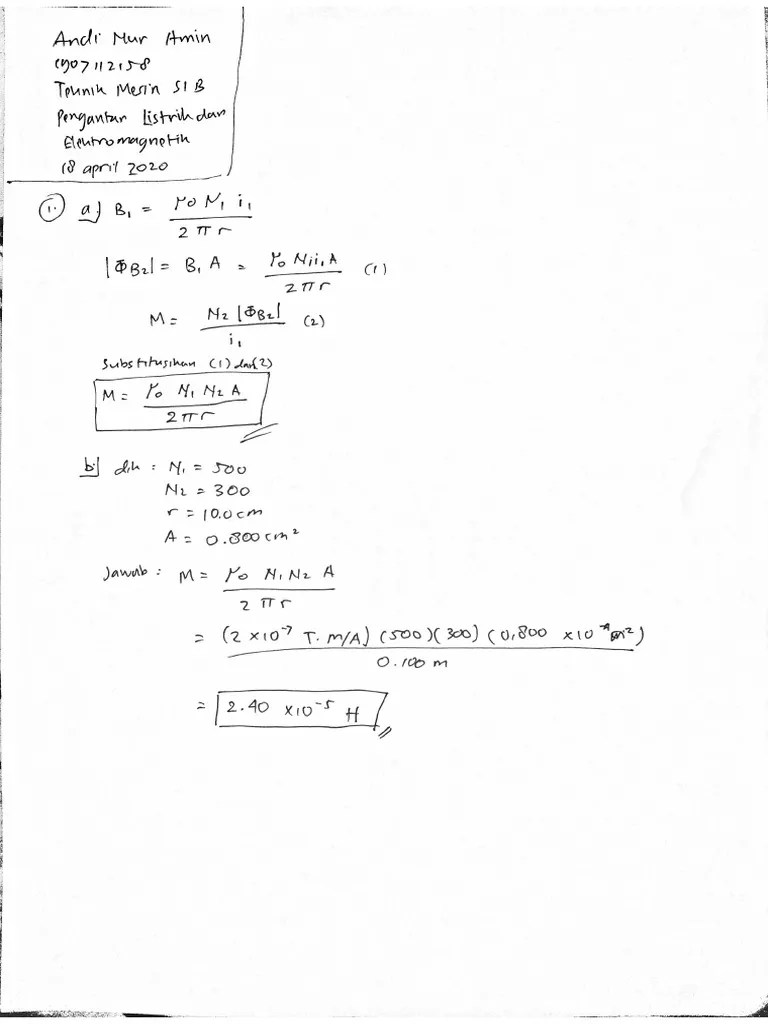 Andi Nur Amin
1907112158
Teknik Mesin S1 B
Pengantar Listrik dan
Elektromagnetik
18 april 2020
1. a) B₁ = μ₀ N₁ i₁ / 2πr
|Φ_B2| = B₁ A = μ₀ N₁i₁A / 2πr (1)
M = N₂ |Φ_B2| / i₁ (2)
Substitusikan (1) dan (2)
M = μ₀ N₁ N₂ A / 2πr
b) dik : N₁ = 500
N₂ = 300
r = 10.0 cm
A = 0.800 cm²
Jawab : M = μ₀ N₁ N₂ A / 2πr
= (2 × 10⁻⁷ T. m/A) (500) (300) (0,800 × 10⁻⁴ m²) / 0.100 m
= 2.40 × 10⁻⁵ H